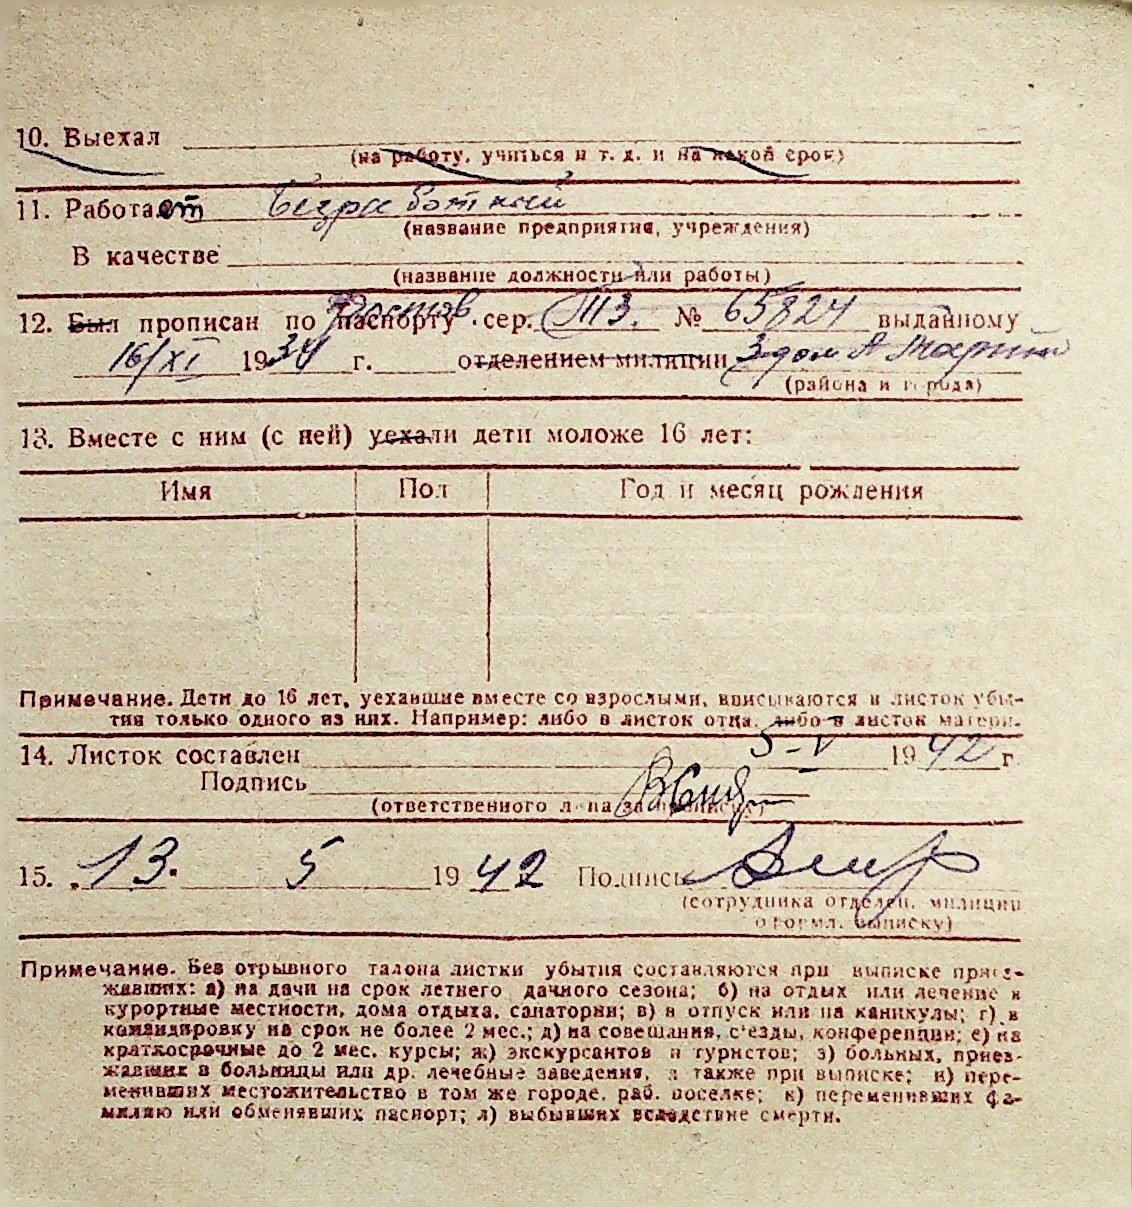 10. Выехал
(на работу, учиться и т. д. и на какой срок)
11. Работает Безработный
(название предприятия, учреждения)
В качестве
(название должности или работы)
12. Был прописан по паспорту сер. ТЗ. № 65824 выданному
16/XI 1934 г. отделением милиции
(района и города)
13. Вместе с ним (с ней) уехали дети моложе 16 лет:
Имя Пол Год и месяц рождения
Примечание. Дети до 16 лет, уехавшие вместе со взрослыми, вписываются в листок убы-
тия только одного из них. Например: либо в листок отца, либо в листок матери.
14. Листок составлен 5-V 1942 г.
Подпись
(ответственного лица за прописку)
15. 13. 5 1942 Подпись
(сотрудника отделен. милиции
оформл. выписку)
Примечание. Без отрывного талона листки убытия составляются при выписке приез-
жавших: а) на дачи на срок летнего дачного сезона; б) на отдых или лечение в
курортные местности, дома отдыха, санатории; в) в отпуск или на каникулы; г) в
командировку на срок не более 2 мес.; д) на совещания, с'езды, конференции; е) на
краткосрочные до 2 мес. курсы; ж) экскурсантов и туристов; з) больных, приез-
жавших в больницы или др. лечебные заведения, а также при выписке; и) пере-
менивших местожительство в том же городе, раб. поселке; к) переменивших фа-
милию или обменявших паспорт; л) выбывших вследствие смерти.